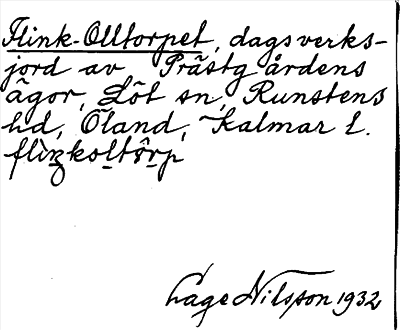 Flink-Olltorpet, dagsverks-
jord av Prästgårdens
ägor, Löt sn, Runstens
hd, Öland, Kalmar l.
Lage Nilsson 1932